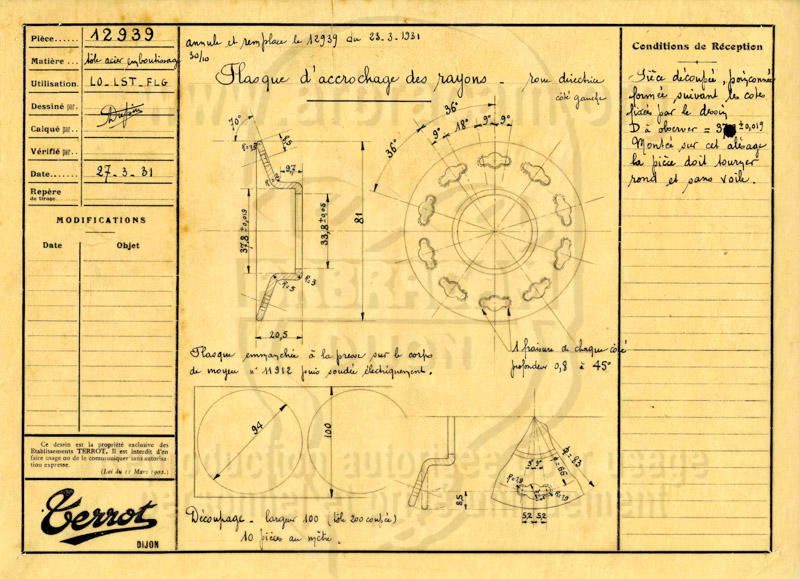 Pièce..... 12939
Matière... tôle acier emboutissage
Utilisation. LO_LST_FLG
Dessiné par.
Calqué par..
Vérifié par..
Date....... 27-3-31
Repère
de tirage.
MODIFICATIONS
Date Objet
Ce dessin est la propriété exclusive des
Etablissements TERROT. Il est interdit d'en
faire usage ou de le communiquer sans autorisa-
tion expresse.
(Loi du 11 Mars 1902.)
Terrot
DIJON
annule et remplace le 12939 du 23-3-1931
30/10
Flasque d'accrochage des rayons _ roue directrice
côté gauche
36°
9° 18° 9° 9°
36°
70°
9,7
37,8 ±0,019
33,8 ±0,05
81
R=5
R=3
20,5
Flasque emmanchée à la presse sur le corps
de moyeu n° 11912 puis soudée électriquement.
1 fraisure de chaque côté
profondeur 0,8 à 45°
94
100
8,5
9° 9°
φ=66
φ=83
5,2 5,2
Découpage _ largeur 100 (tôle 200 coupée)
10 pièces au mètre.
Conditions de Réception
Pièce découpée, poinçonnée
formée suivant les cotes
fixées par le dessin
D à observer = ±0,019
Montée sur cet alésage
la pièce doit tourner
rond et sans voile.